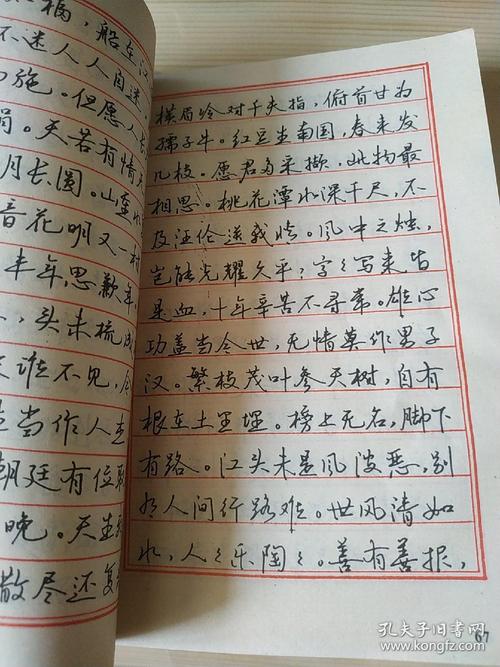 福，船在江
不迷人人自迷
施。但愿人长
娟。天若有情
月长圆。山重水
音花明又一村
丰年思歉年
，头未梳
谁不见，
当作人
朝廷有位
晚。天生
散尽还复
横眉冷对千夫指，俯首甘为
孺子牛。红豆生南国，春来发
几枝。愿君多采撷，此物最
相思。桃花潭水深千尺，不
及汪伦送我情。风中之烛，
岂能光耀久乎；字々写来皆
是血，十年辛苦不寻常。雄心
功盖当今世，无情莫作男子
汉。繁枝茂叶参天树，自有
根在土里埋。榜上无名，脚下
有路。江头未是风波恶，别
有人间行路难。世风清如
水，人々乐陶々。善有善报，
67
孔夫子旧书网
www.kongfz.com